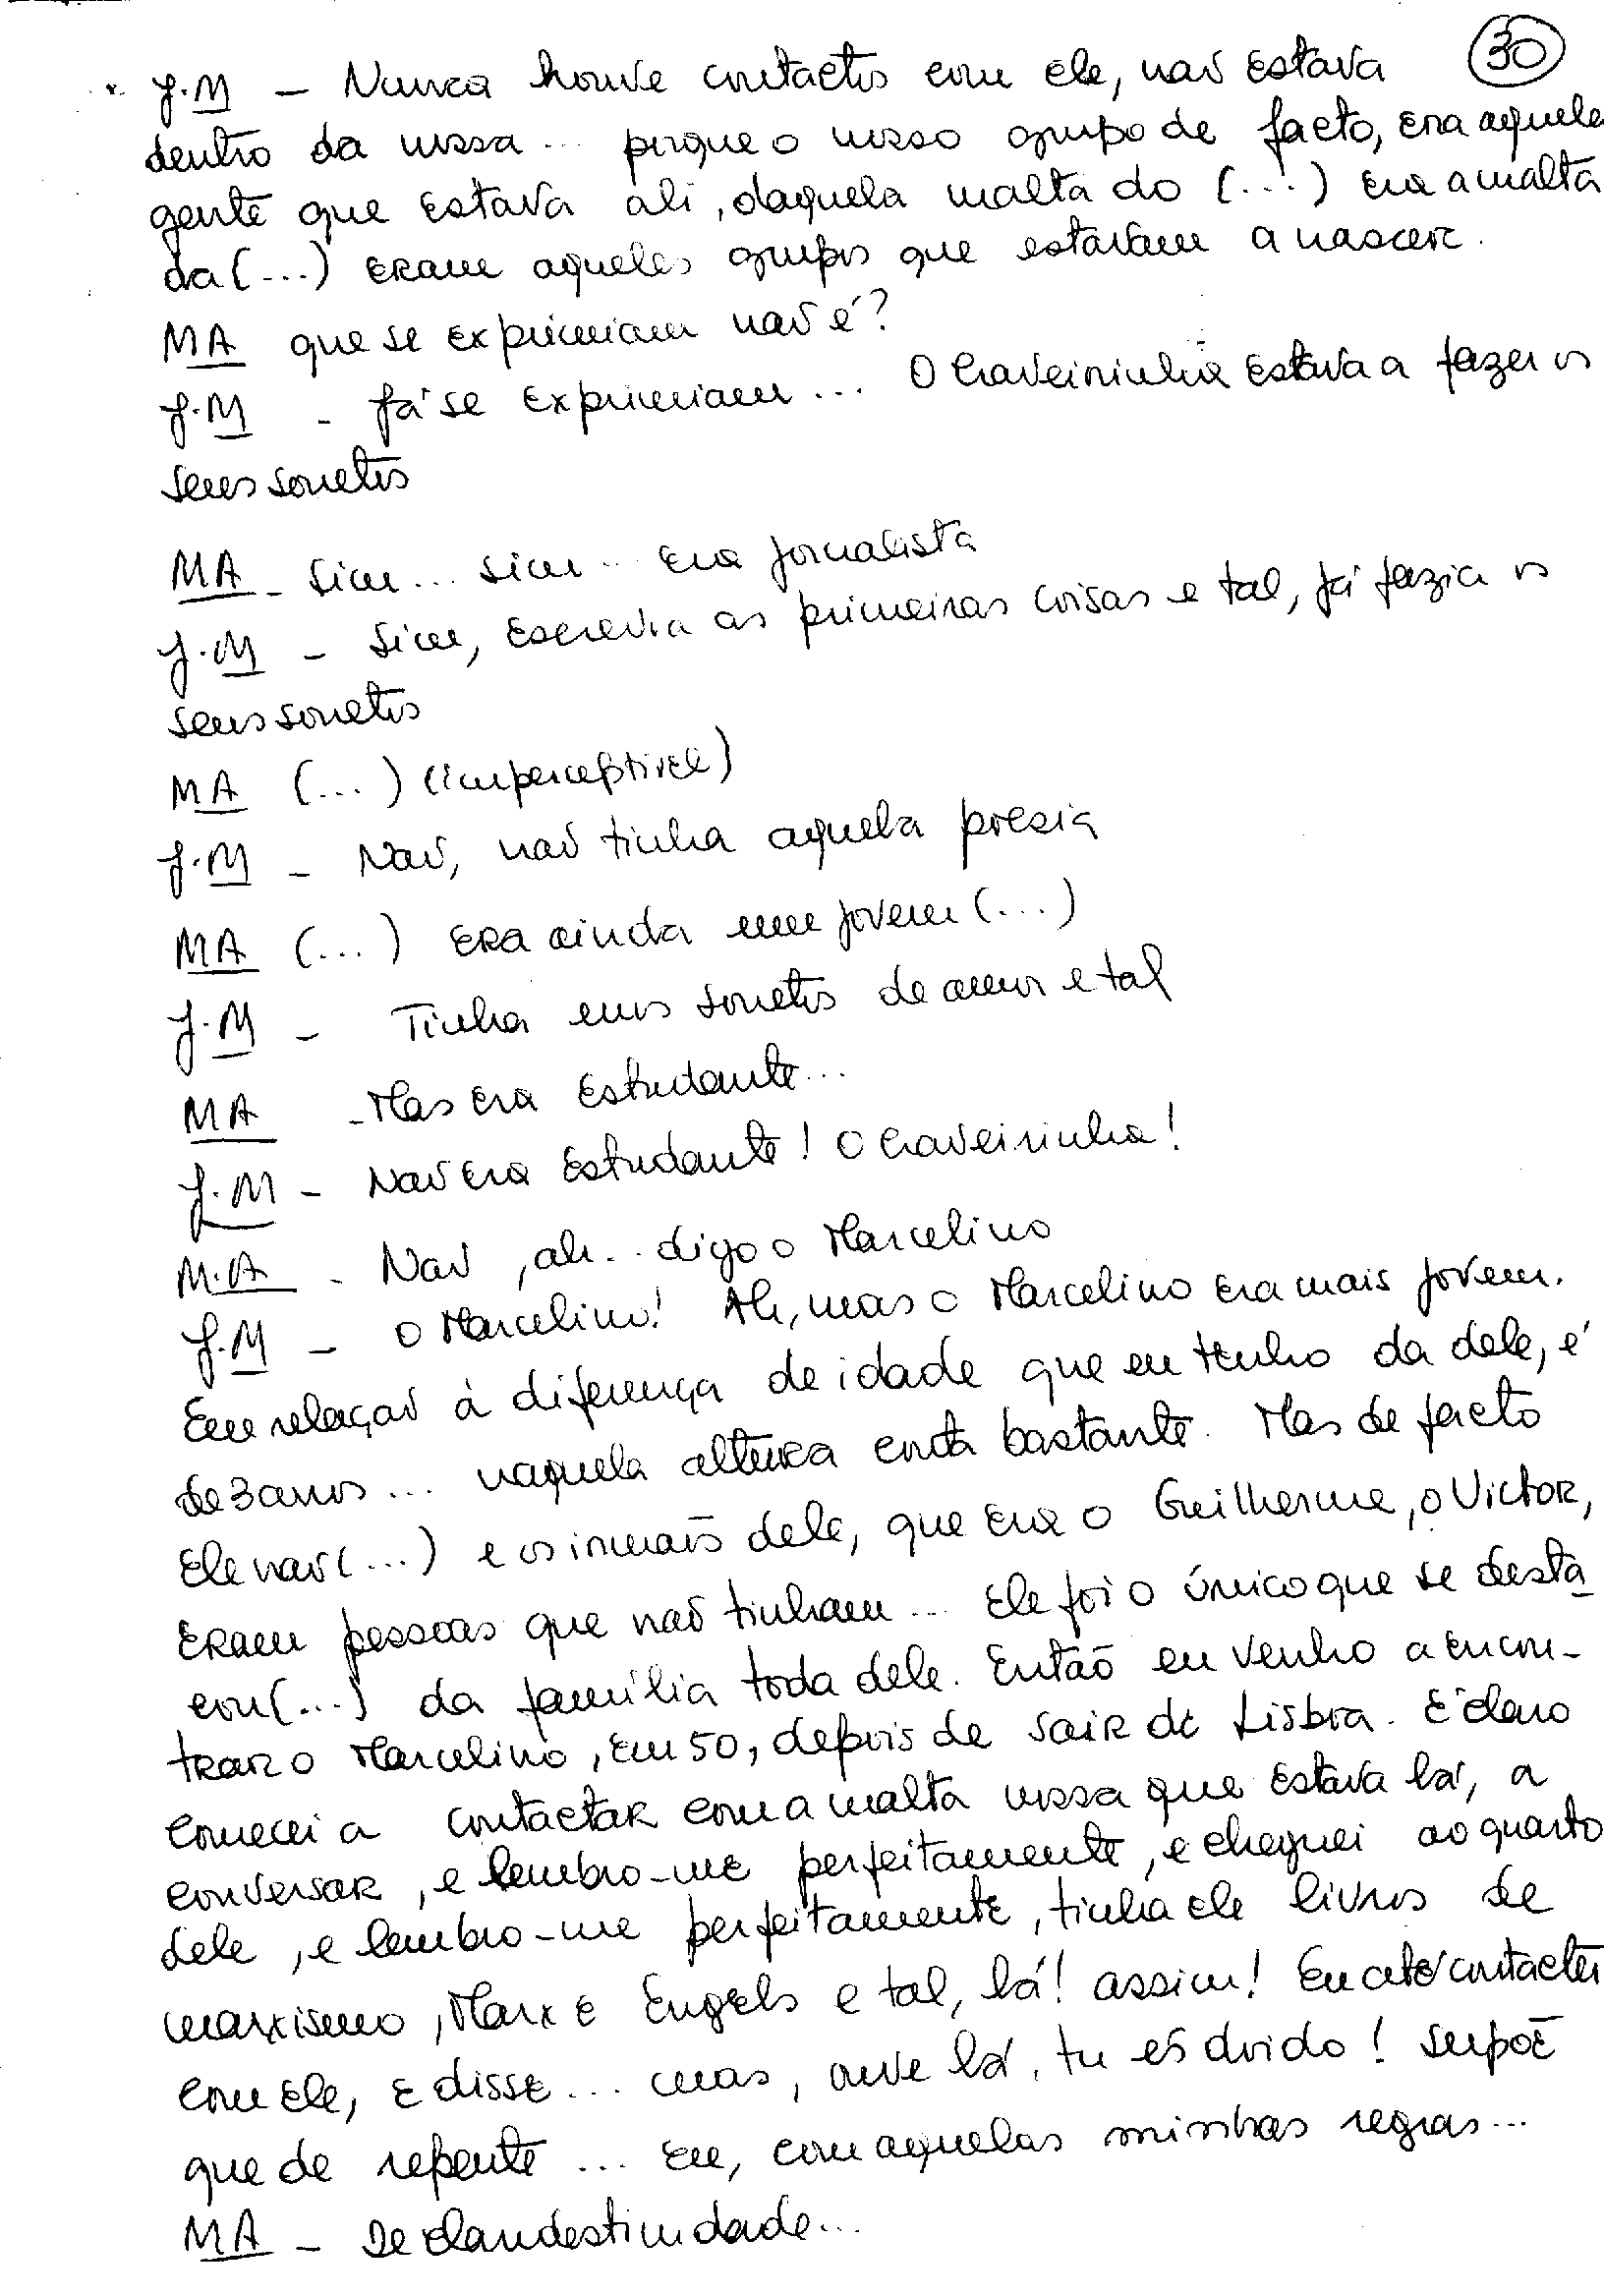 30
J.M – Nunca houve contactos com ele, não estava
dentro da nossa ... porque o nosso grupo de facto, era aquela
gente que estava ali, daquela malta do (...) era a malta
da (...) eram aqueles grupos que estavam a nascer.
MA que se exprimiam não é?
J.M - Já se exprimiam ... O Craveirinha estava a fazer os
seus sonetos
MA - Sim... sim... era jornalista
J.M – Sim, escrevia as primeiras coisas e tal, já fazia os
seus sonetos
MA (...) (imperceptível)
J.M – Não, não tinha aquela poesia
MA (...) era ainda um jovem (...)
J.M – Tinha uns sonetos de amor e tal
MA - Mas era estudante...
J.M – Não era estudante! O Craveirinha!
M.A - Não, ah... digo o Marcelino
J.M – O Marcelino! Ah, mas o Marcelino era mais jovem.
Em relação à diferença de idade que eu tenho da dele, é
de 3 anos ... naquela altura conta bastante. Mas de facto
ele não (...) e os irmãos dele, que era o Guilherme, o Victor,
eram pessoas que não tinham ... Ele foi o único que se desta
cou (...) da família toda dele. Então eu venho a encon-
trar o Marcelino, em 50, depois de sair de Lisboa. É claro
comecei a contactar com a malta nossa que estava lá, a
conversar, e lembro-me perfeitamente, e cheguei ao quarto
dele, e lembro-me perfeitamente, tinha ele livros de
marxismo, Marx e Engels e tal, lá! assim! Eu até contactei
com ele, e disse ... mas, ouve lá, tu és doido! Supõe
que de repente ... Eu, com aquelas minhas regras...
MA – De clandestinidade...